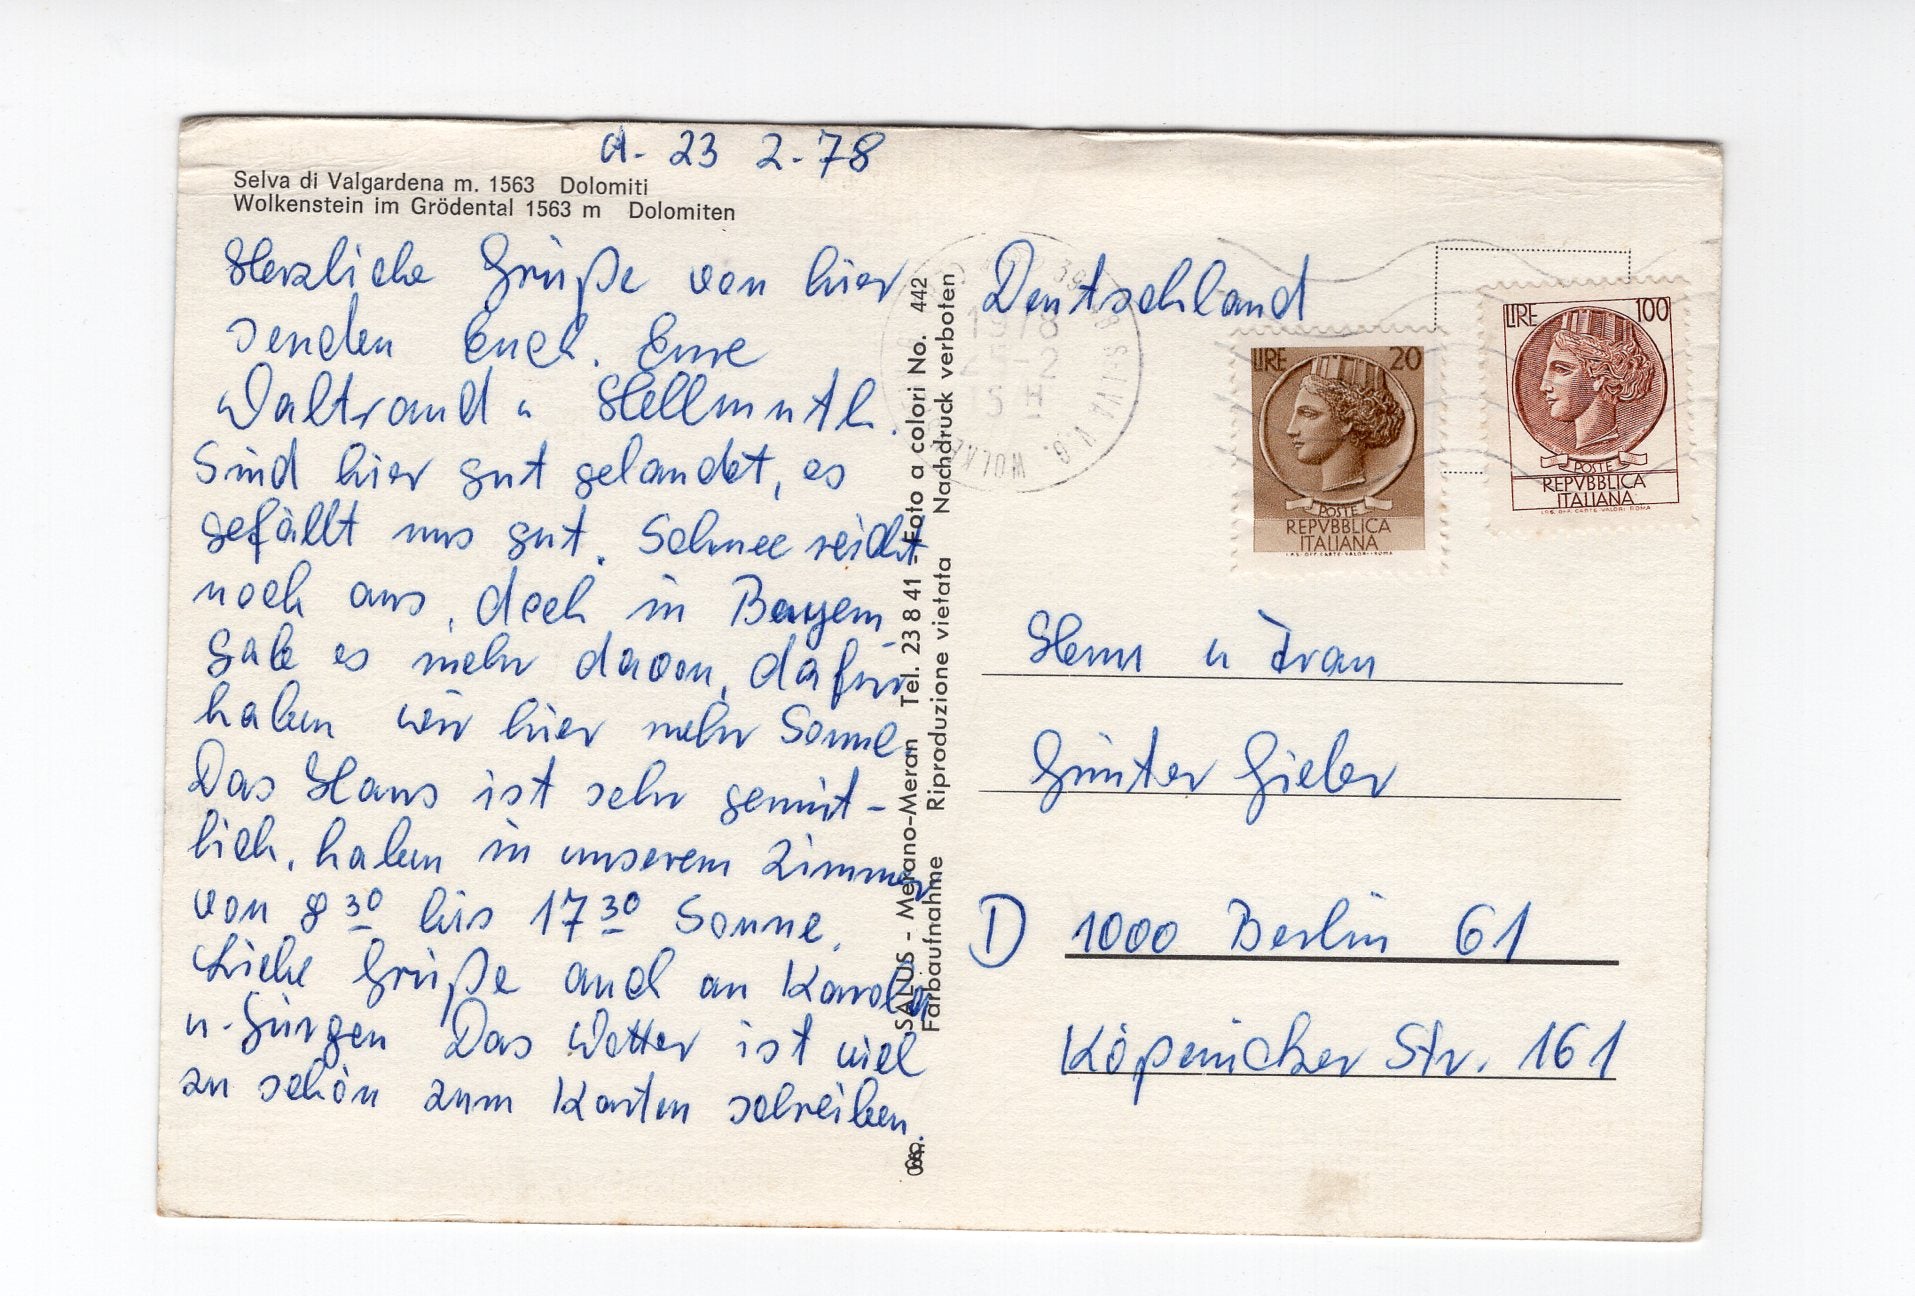 d. 23 2.78
Selva di Valgardena m. 1563 Dolomiti
Wolkenstein im Grödental 1563 m Dolomiten
Herzliche Grüße von hier
senden Euch. Eure
Waltraud u Hellmuth.
Sind hier gut gelandet, es
gefällt uns gut. Schnee reicht
noch aus, doch in Bayern
gab es mehr davon, dafür
haben wir hier mehr Sonne.
Das Haus ist sehr gemüt-
lich, haben in unserem Zimmer
von 8 30 bis 17 30 Sonne.
Liebe Grüße auch an Karola
u. Jürgen Das Wetter ist viel
zu schön zum Karten schreiben.
SALUS - Merano-Meran Tel. 23 8 41 - Foto a colori No. 442
Farbaufnahme Riproduzione vietata Nachdruck verboten
Deutschland
1978
15 H
LIRE 20
POSTE
REPVBBLICA
ITALIANA
I.P.S. OFF. CARTE-VALORI-ROMA
LIRE 100
POSTE
REPVBBLICA
ITALIANA
I.P.S. OFF. CARTE-VALORI ROMA
Herrn u Frau
Günter Gieler
D 1000 Berlin 61
Köpenicker Str. 161